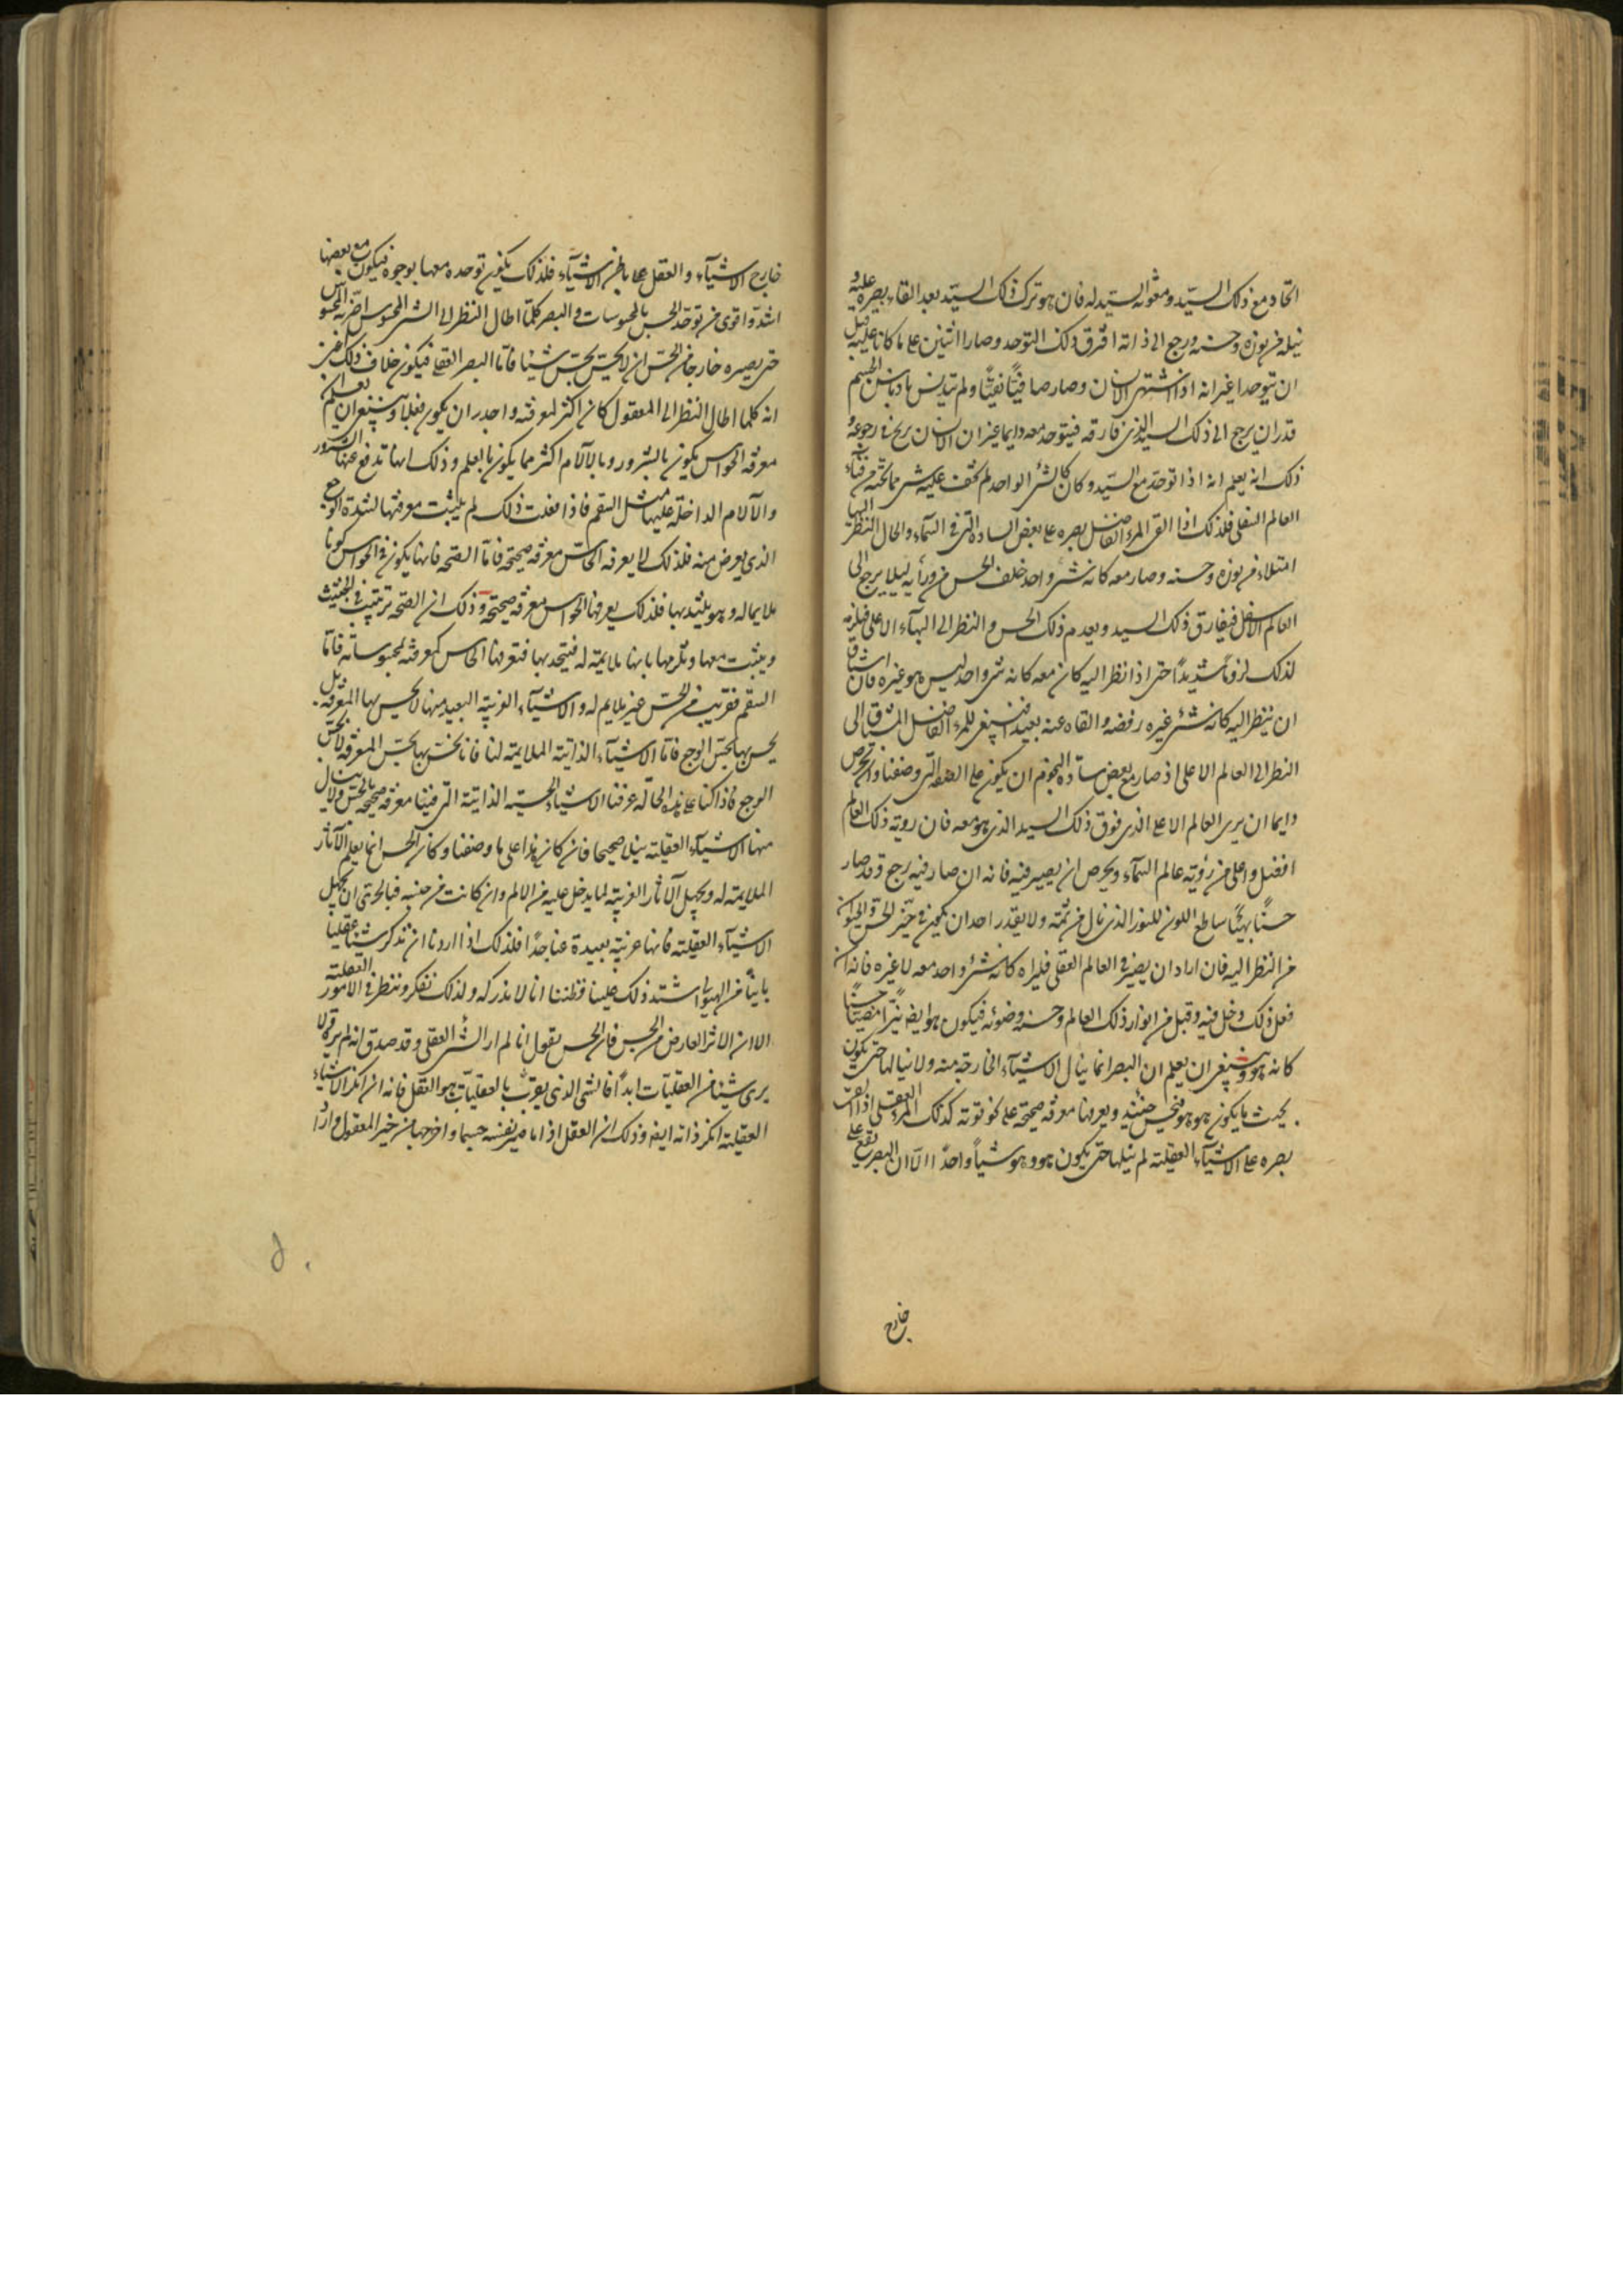 اتحاد مع ذلك السيد ومعونة السيد له فان هو ترك ذلك السيد بعد القاء بصره عليه و
نيله من نوره وحسنه ورجع الى ذاته افترق ذلك التوحد وصارا اثنين على ما كانا عليه قبل
ان يتوحدا غير انه اذا اشتهى الانسان وصار صافيًا نقيًا ولم يتدنس بادناس الجسم
قدر ان يرجع الى ذلك السيد الذى فارقه فيتوحد معه دايما غير ان الانسان ربح فى رجوعه و
ذلك انه يعلم انه اذا توحد مع السيد وكان كالشئ الواحد لم تخف عليه شئ مما تحته من
العالم السفلى فلذلك اذا القى المرء الفاضل بصره على بعض السادة التى فى السماء واطال النظر اليها
امتلاء من نوره وحسنه وصار معه كانه شئ واحد خلف الحس من ورأيه ليلا يرجع الى
العالم الاسفل فيفارق ذلك السيد ويعدم ذلك الحسن والنظر الى البهاء الاعلى فيلزمه
لذلك لزومًا شديدًا حتى اذا نظر اليه كان معه كانه شئ واحد ليس هو غيره فان اشتاق
ان ينظر اليه كانه شئ غيره رفضه والقاه عنه بعيدا فينبغى للمرء الفاضل المشتاق الى
النظر الى العالم الاعلى اذ صار مع بعض سادة النجوم ان يكون على الصفة التى وصفنا والحرص
دايما ان يرى العالم الاعلى الذى فوق ذلك السيد الذى هو معه فان روية ذلك العالم
افضل واعلى من رؤية عالم السماء ويحرص ان يصير فيه فانه ان صار فيه رجع وقد صار
حسنًا بهيًا ساطع اللون للنور الذى نال من ثمة ولا يقدر احد ان يكون فى حيز الحس و
من النظر اليه فان اراد ان يصير فى العالم العقلى فليراه كانه شئ واحد معه لا غيره فانه ان
فعل ذلك دخل فيه وقبل من انوار ذلك العالم وحسنه وضوئه فيكون هو ايضا نيرًا مضيئًا حسنًا
كانه هو وينبغى ان يعلم ان البصر انما ينال الاشياء الخارجة منه ولا ينالها حتى يكون
بحيث ما يكون هو هو فيحس حينئذ ويعرفها معرفة صحيحة على نحو قوته كذلك المرء العقلى اذا القى
بصره على الاشياء العقلية لم ينلها حتى يكون هو وهو شيأ واحدًا الا ان البصر يقع على
خارج
خارج الاشياء والعقل على باطن الاشياء فلذلك يكون توحده معها بوجوه فيكون مع بعضها
اشد واقوى من توحد الحس بالمحسوسات والبصر كلما اطال النظر الى الشئ المحسوس اضر به المحسوس
حتى يصيره خارجا من الحس اى لا يحس شيئا فاما البصر العقلى فيكون خلاف ذلك اعنى
انه كلما اطال النظر الى المعقول كان اكثر لمعرفته واحدر ان يكون عقلا وينبغى ان تعلم ان
معرفة الحواس يكون بالشرور وبالآلام اكثر مما يكون بالعلم وذلك انها تدفع عنها الشرور
والآلام الداخلة عليها مثل السقم فاذا فعلت ذلك لم يثبت معرفتها لشدة الوجع
الذى يعرض منه فلذلك لا يعرفه الحاس معرفة صحيحة فاما الصحة فانها يكون فى الحواس كونا
ملايما له وهو يلتذ بها فلذلك يعرفها الحواس معرفة صحيحة وذلك ان الصحة ترتيب فى
ويثبت معها وتلزمها بانها ملايمة له فيتحد بها فتعرفها الحاس كمعرفته لمحسوساته فاما
السقم فغريب من الحس غير ملايم له والاشياء الغريبة البعيد منها لا يحس بها المعرفة بل
يحس بها بحس الوجع فاما الاشياء الذاتية الملايمة لنا فانا نحس بها بحس المعرفة لا بحس
الوجع فاذا كنا على هذه الحالة عرفنا الاشياء الحسية الذاتية التى فينا معرفة صحيحة بالحس ولا ينال
منها الاشياء العقلية نيلا صحيحا فان كان هذا على ما وصفنا وكان الحس انما يعلم الآثار
الملايمة له ويجهل الآثار الغريبة لما يدخل عليه من الالم وان كانت من جنسه فبالحرى ان يجهل
الاشياء العقلية فانها غريبة بعيدة عنا جدًا فلذلك اذا اردنا ان نتذكر شيئا عقليا
باينا من الهيولى اشتد ذلك علينا فظننا انا لا ندركه ولذلك نفكر وننظر فى الامور العقلية
الا ان الاثر العارض من الحس فان الحس يقول انا لم ار الشئ العقلى وقد صدق انه لم يره ولا
يرى شيئا من العقليات ابدًا فالشى الذى يقرب بالعقليات هو العقل فانه ان انكر الاشياء
العقلية انكر ذاته ايضا وذلك ان العقل اذا ما صير نفسه جسما واخرجها من حيز المعقول واراد